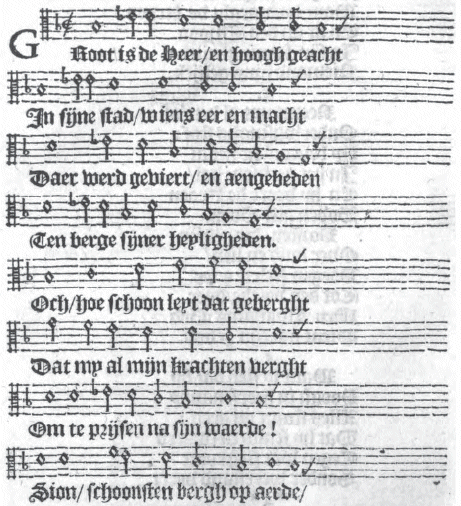 GRoot is de Heer/en hoogh geacht
In sijne stad/wiens eer en macht
Daer werd geviert/ en aengebeden
Ten berge sijner heyligheden.
Och/hoe schoon leyt dat geberght
Dat my al mijn krachten verght
Om te prijsen na sijn waerde !
Sion/ schoonsten bergh op aerde/